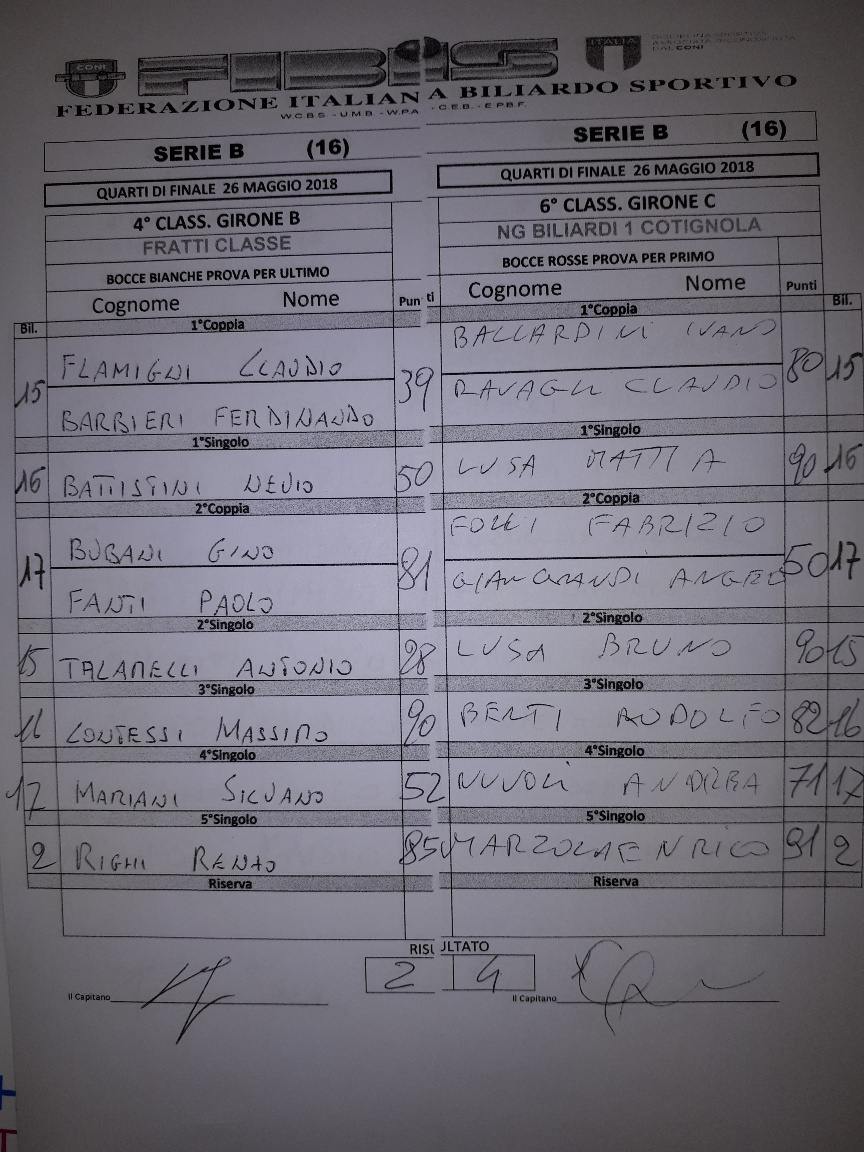 CONI FIBIS ITALIA DISCIPLINA SPORTIVA
ASSOCIATA RICONOSCIUTA
DAL CONI
FEDERAZIONE ITALIANA BILIARDO SPORTIVO
W.C.B.S. - U.M.B. - W.P.A. - C.E.B. - E.P.B.F.
SERIE B (16)
QUARTI DI FINALE 26 MAGGIO 2018
4° CLASS. GIRONE B
FRATTI CLASSE
BOCCE BIANCHE PROVA PER ULTIMO
Cognome Nome Punti
Bil.
1°Coppia
15 FLAMIGNI CLAUDIO 39
BARBIERI FERDINANDO
1°Singolo
16 BATTISTINI NEVIO 50
2°Coppia
17 BUBANI GINO 81
FANTI PAOLO
2°Singolo
15 TALAMELLI ANTONIO 28
3°Singolo
16 CONTESSI MASSIMO 90
4°Singolo
17 MARIANI SILVANO 52
5°Singolo
2 RIGHI RENATO 85
Riserva
SERIE B (16)
QUARTI DI FINALE 26 MAGGIO 2018
6° CLASS. GIRONE C
NG BILIARDI 1 COTIGNOLA
BOCCE ROSSE PROVA PER PRIMO
Cognome Nome Punti
Bil.
1°Coppia
BALLARDINI IVANO 80 15
RAVAGLI CLAUDIO
1°Singolo
LUSA MATTIA 90 16
2°Coppia
FOLLI FABRIZIO 50 17
GIANGRANDI ANGELO
2°Singolo
LUSA BRUNO 90 15
3°Singolo
BERTI RODOLFO 82 16
4°Singolo
NUVOLI ANDREA 71 17
5°Singolo
MARZOLA ENRICO 91 2
Riserva
RISULTATO
2 4
Il Capitano
Il Capitano